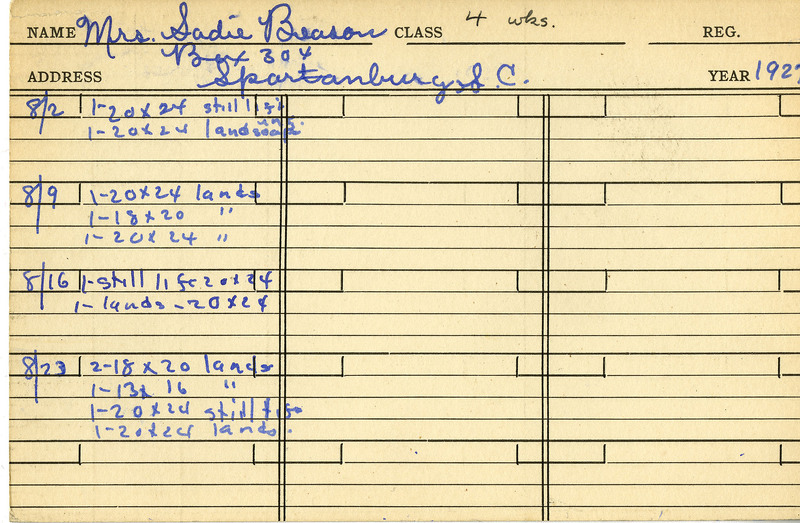 NAME Mrs. Sadie Beason CLASS 4 wks. REG.
Box 304
ADDRESS Spartanburg, S.C. YEAR 1927
8/2 1-20x24 still life
1-20x24 landscape
8/9 1-20x24 lands
1-18x20 "
1-20x24 "
8/16 1-still life 20x24
1-lands-20x24
8/23 2-18x20 lands
1-13x16 "
1-20x24 still life
1-20x24 lands.